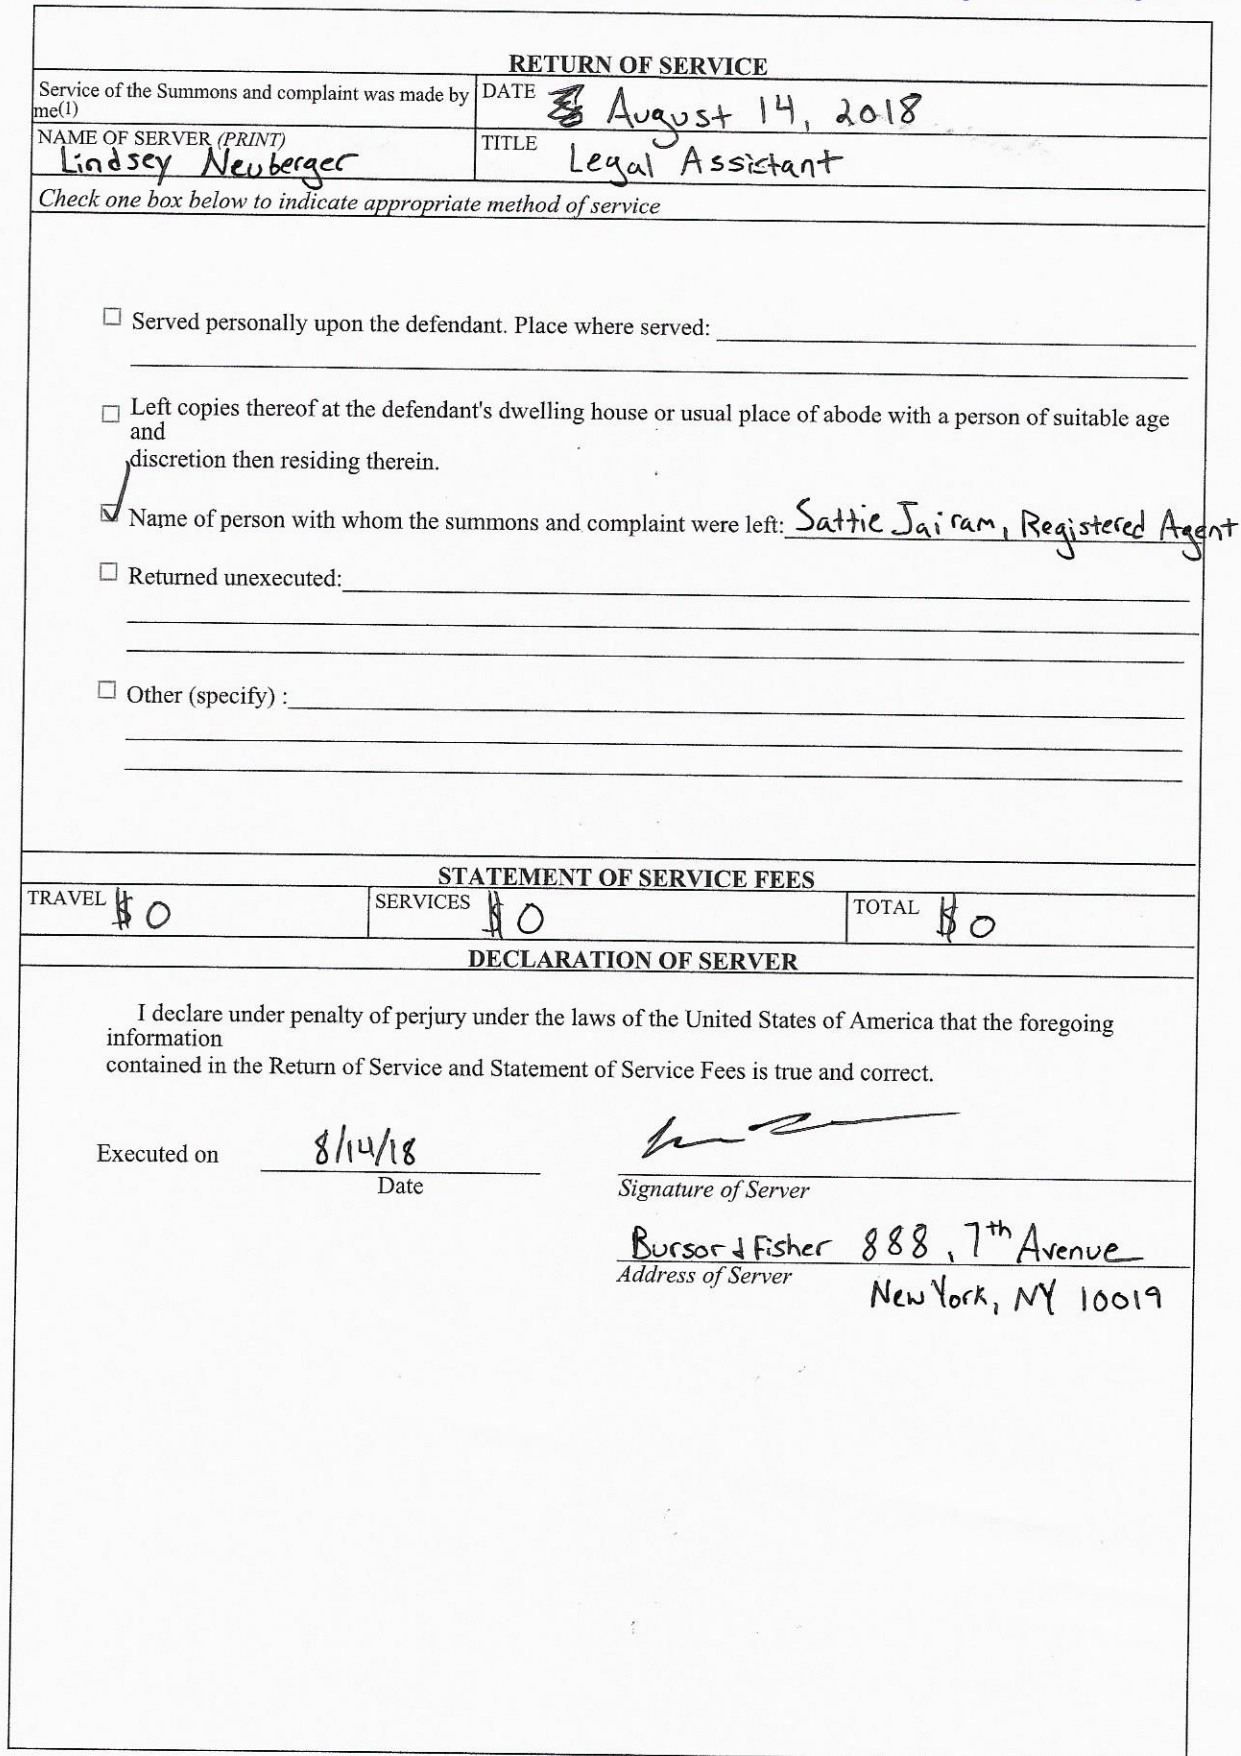 RETURN OF SERVICE
Service of the Summons and complaint was made by me(1)
DATE August 14, 2018
NAME OF SERVER (PRINT)
Lindsey Neuberger
TITLE Legal Assistant
Check one box below to indicate appropriate method of service
Served personally upon the defendant. Place where served:
Left copies thereof at the defendant's dwelling house or usual place of abode with a person of suitable age
and
discretion then residing therein.
Name of person with whom the summons and complaint were left: Sattie Jairam, Registered Agent
Returned unexecuted:
Other (specify) :
STATEMENT OF SERVICE FEES
TRAVEL $0
SERVICES $0
TOTAL $0
DECLARATION OF SERVER
I declare under penalty of perjury under the laws of the United States of America that the foregoing
information
contained in the Return of Service and Statement of Service Fees is true and correct.
Executed on 8/14/18
Date
Signature of Server
Bursor & Fisher 888, 7th Avenue
Address of Server
New York, NY 10019